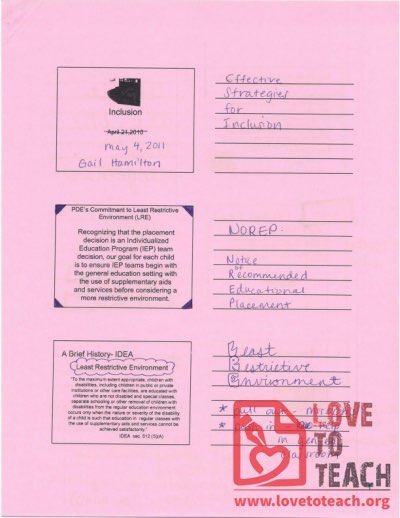 Inclusion
April 21, 2010
may 4, 2011
Gail Hamilton
Effective
Strategies
for
Inclusion
PDE's Commitment to Least Restrictive
Environment (LRE)
Recognizing that the placement
decision is an Individualized
Education Program (IEP) team
decision, our goal for each child
is to ensure IEP teams begin with
the general education setting with
the use of supplementary aids
and services before considering a
more restrictive environment.
NOREP:
Notice
of
Recommended
Educational
Placement
A Brief History- IDEA
Least Restrictive Environment
"To the maximum extent appropriate, children with
disabilities, including children in public or private
institutions or other care facilities, are educated with
children who are not disabled and special classes,
separate schooling or other removal of children with
disabilities from the regular education environment
occurs only when the nature or severity of the disability
of a child is such that education in regular classes with
the use of supplementary aids and services cannot be
achieved satisfactorily."
IDEA sec. 612 (5)(A)
Least
Restrictive
Environment
* pull out
*
in general
classroom
LOVE
TO
TEACH
www.lovetoteach.org